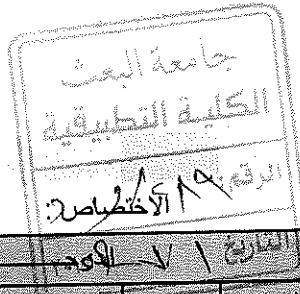 جامعة البعث
الكلية التطبيقية
الرقم: ٨٩
الأختصاص:
التاريخ / ٧ /